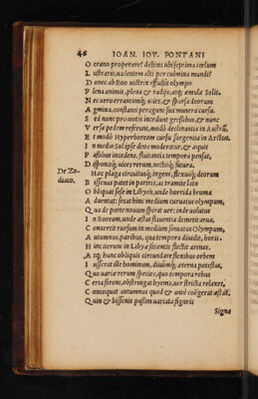 46 IOAN. IOV. PONTANI
O crano properaret
L ustraret, ualentem acti per culmina mundi
D onec ab Eoo uectrix effulsit olympo
P lena animis, plena & radijs, atq; æmula Solis.
N ec uero errantumq; acies, & sparsa deorum
A gmina, constanti peragunt sua munera cursu.
S ed nunc prouectis incedunt gressibus, & nunc
V ersa pedem referunt, modo declinantia in Austrũ,
E t modo Hyperboream cursu surgentia in Arcton.
I n medio Sol ipse deos moderatur, & æquit
P assibus incedens, fluitantia tempora pensat,
D isponitq; uices rerum, nectitq; futura.
De Zodiaco. Hac plaga circuitusq; ingens, flexusq; deorum
B issenas patet in partes, ac tramite lato
O bliquat sese in Libyen, unde horrida bruma
A duentat: secat hinc medium curuatus olympum,
Q ua de parte nouum spirat uer: inde uolutus
I n Boream, unde æstas flauentia demetit arua,
C onuertit rursum in medium sinuatus Olympum
A utumnus paribus, qua tempora diuidit, horis.
H inc iterum in Libyæ sitientis flectit arenas.
A tq; hunc obliquis circundare flexibus orbem
I usserat ille hominum, diuumq; æterna potestas,
Q uo uariæ rerum species, quo tempora rebus
C erta forent, obstringat hyems, uer stricta relaxet,
C oncoquat autumnus quod & ante coëgerat æstas,
Q uin & bissenis pulsum uariata figuris
Signa